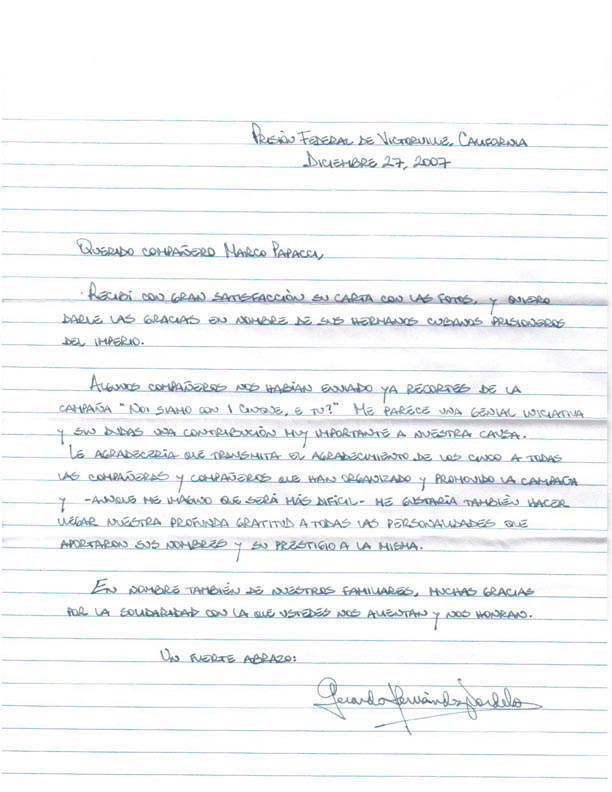 PRISIÓN FEDERAL DE VICTORVILLE, CALIFORNIA
DICIEMBRE 27, 2007
QUERIDO COMPAÑERO MARCO PAPACCI,
RECIBÍ CON GRAN SATISFACCIÓN SU CARTA CON LAS FOTOS, Y QUIERO
DARLE LAS GRACIAS EN NOMBRE DE SUS HERMANOS CUBANOS PRISIONEROS
DEL IMPERIO.
ALGUNOS COMPAÑEROS NOS HABÍAN ENVIADO YA RECORTES DE LA
CAMPAÑA "NOI SIAMO CON I CINQUE, E TU?" ME PARECE UNA GENIAL INICIATIVA
Y SIN DUDAS UNA CONTRIBUCIÓN MUY IMPORTANTE A NUESTRA CAUSA.
LE AGRADECERÍA QUE TRANSMITA EL AGRADECIMIENTO DE LOS CINCO A TODAS
LAS COMPAÑERAS Y COMPAÑEROS QUE HAN ORGANIZADO Y PROMOVIDO LA CAMPAÑA
Y -AUNQUE ME IMAGINO QUE SERÁ MÁS DIFÍCIL- ME GUSTARÍA TAMBIÉN HACER
LLEGAR NUESTRA PROFUNDA GRATITUD A TODAS LAS PERSONALIDADES QUE
APORTARON SUS NOMBRES Y SU PRESTIGIO A LA MISMA.
EN NOMBRE TAMBIÉN DE NUESTROS FAMILIARES, MUCHAS GRACIAS
POR LA SOLIDARIDAD CON LA QUE USTEDES NOS ALIENTAN Y NOS HONRAN.
UN FUERTE ABRAZO:
Gerardo Hernández Nordelo